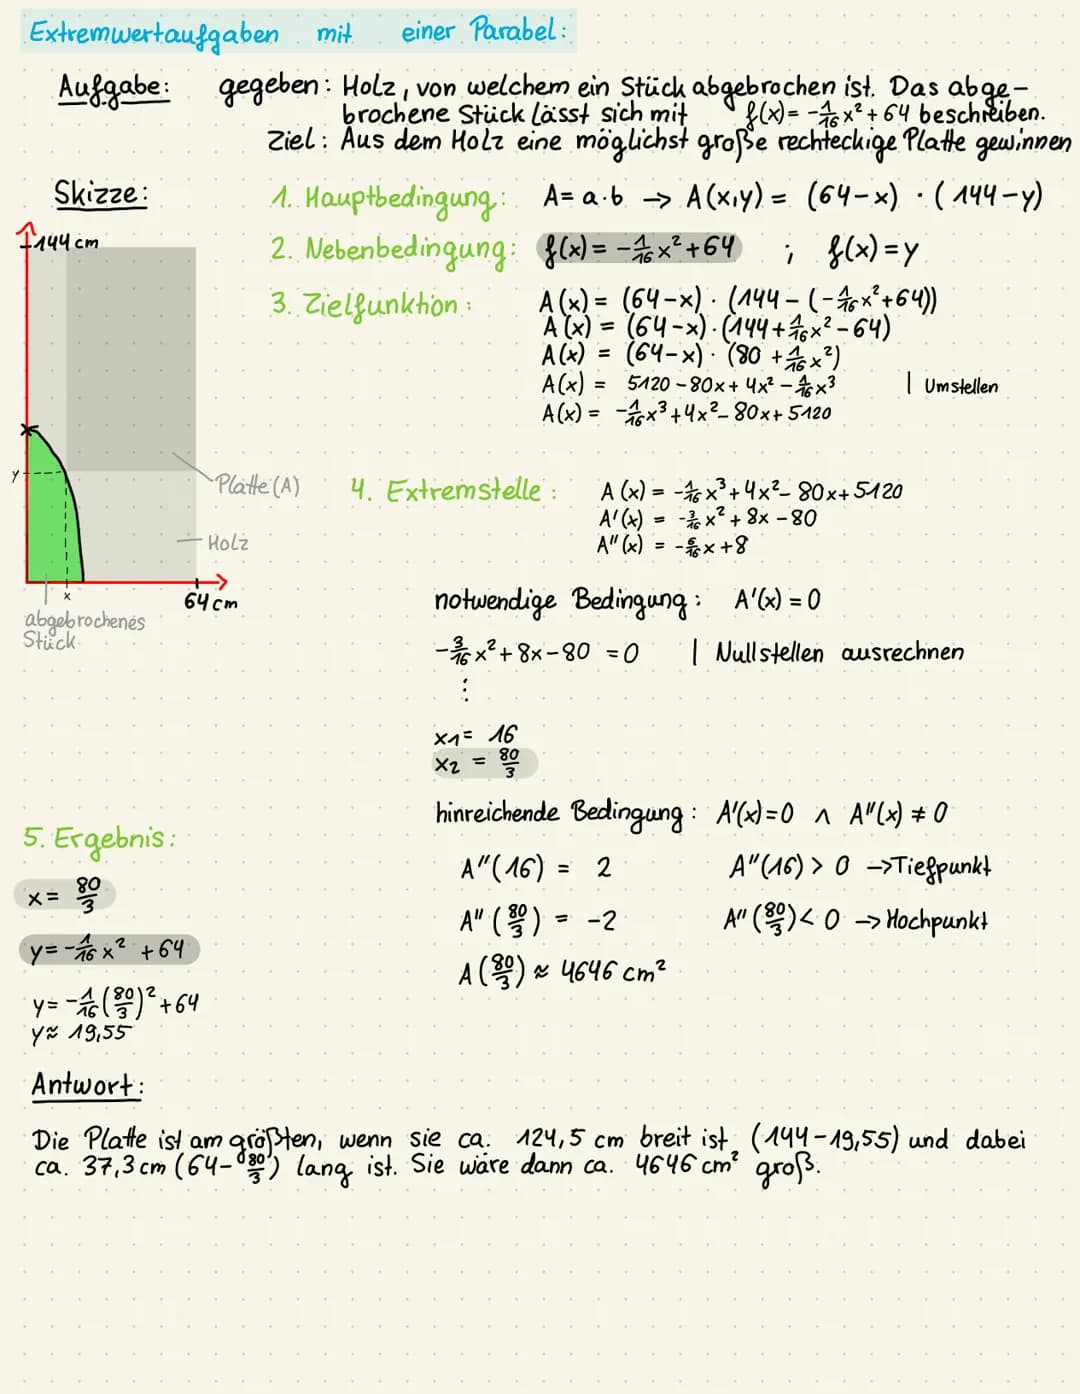 Extremwertaufgaben mit einer Parabel:
Aufgabe: gegeben: Holz, von welchem ein Stück abgebrochen ist. Das abge-
brochene Stück lässt sich mit f(x) = -1/16 x² + 64 beschreiben.
Ziel: Aus dem Holz eine möglichst große rechteckige Platte gewinnen
Skizze:
144 cm
y
Platte (A)
Holz
x
64 cm
abgebrochenes
Stück
1. Hauptbedingung: A = a·b → A(x,y) = (64-x) · (144-y)
2. Nebenbedingung: f(x) = -1/16 x² + 64 ; f(x) = y
3. Zielfunktion: A(x) = (64-x) · (144 - (-1/16 x² + 64))
A(x) = (64-x) · (144 + 1/16 x² - 64)
A(x) = (64-x) · (80 + 1/16 x²)
A(x) = 5120 - 80x + 4x² - 1/16 x³ | Umstellen
A(x) = -1/16 x³ + 4x² - 80x + 5120
4. Extremstelle: A(x) = -1/16 x³ + 4x² - 80x + 5120
A'(x) = -3/16 x² + 8x - 80
A''(x) = -6/16 x + 8
notwendige Bedingung: A'(x) = 0
-3/16 x² + 8x - 80 = 0 | Nullstellen ausrechnen
⋮
x₁ = 16
x₂ = 80/3
hinreichende Bedingung: A'(x) = 0 ∧ A''(x) ≠ 0
A''(16) = 2 A''(16) > 0 → Tiefpunkt
A''(80/3) = -2 A''(80/3) < 0 → Hochpunkt
A(80/3) ≈ 4646 cm²
5. Ergebnis:
x = 80/3
y = -1/16 x² + 64
y = -1/16 (80/3)² + 64
y ≈ 19,55
Antwort:
Die Platte ist am größten, wenn sie ca. 124,5 cm breit ist (144-19,55) und dabei
ca. 37,3 cm (64-80/3) lang ist. Sie wäre dann ca. 4646 cm² groß.